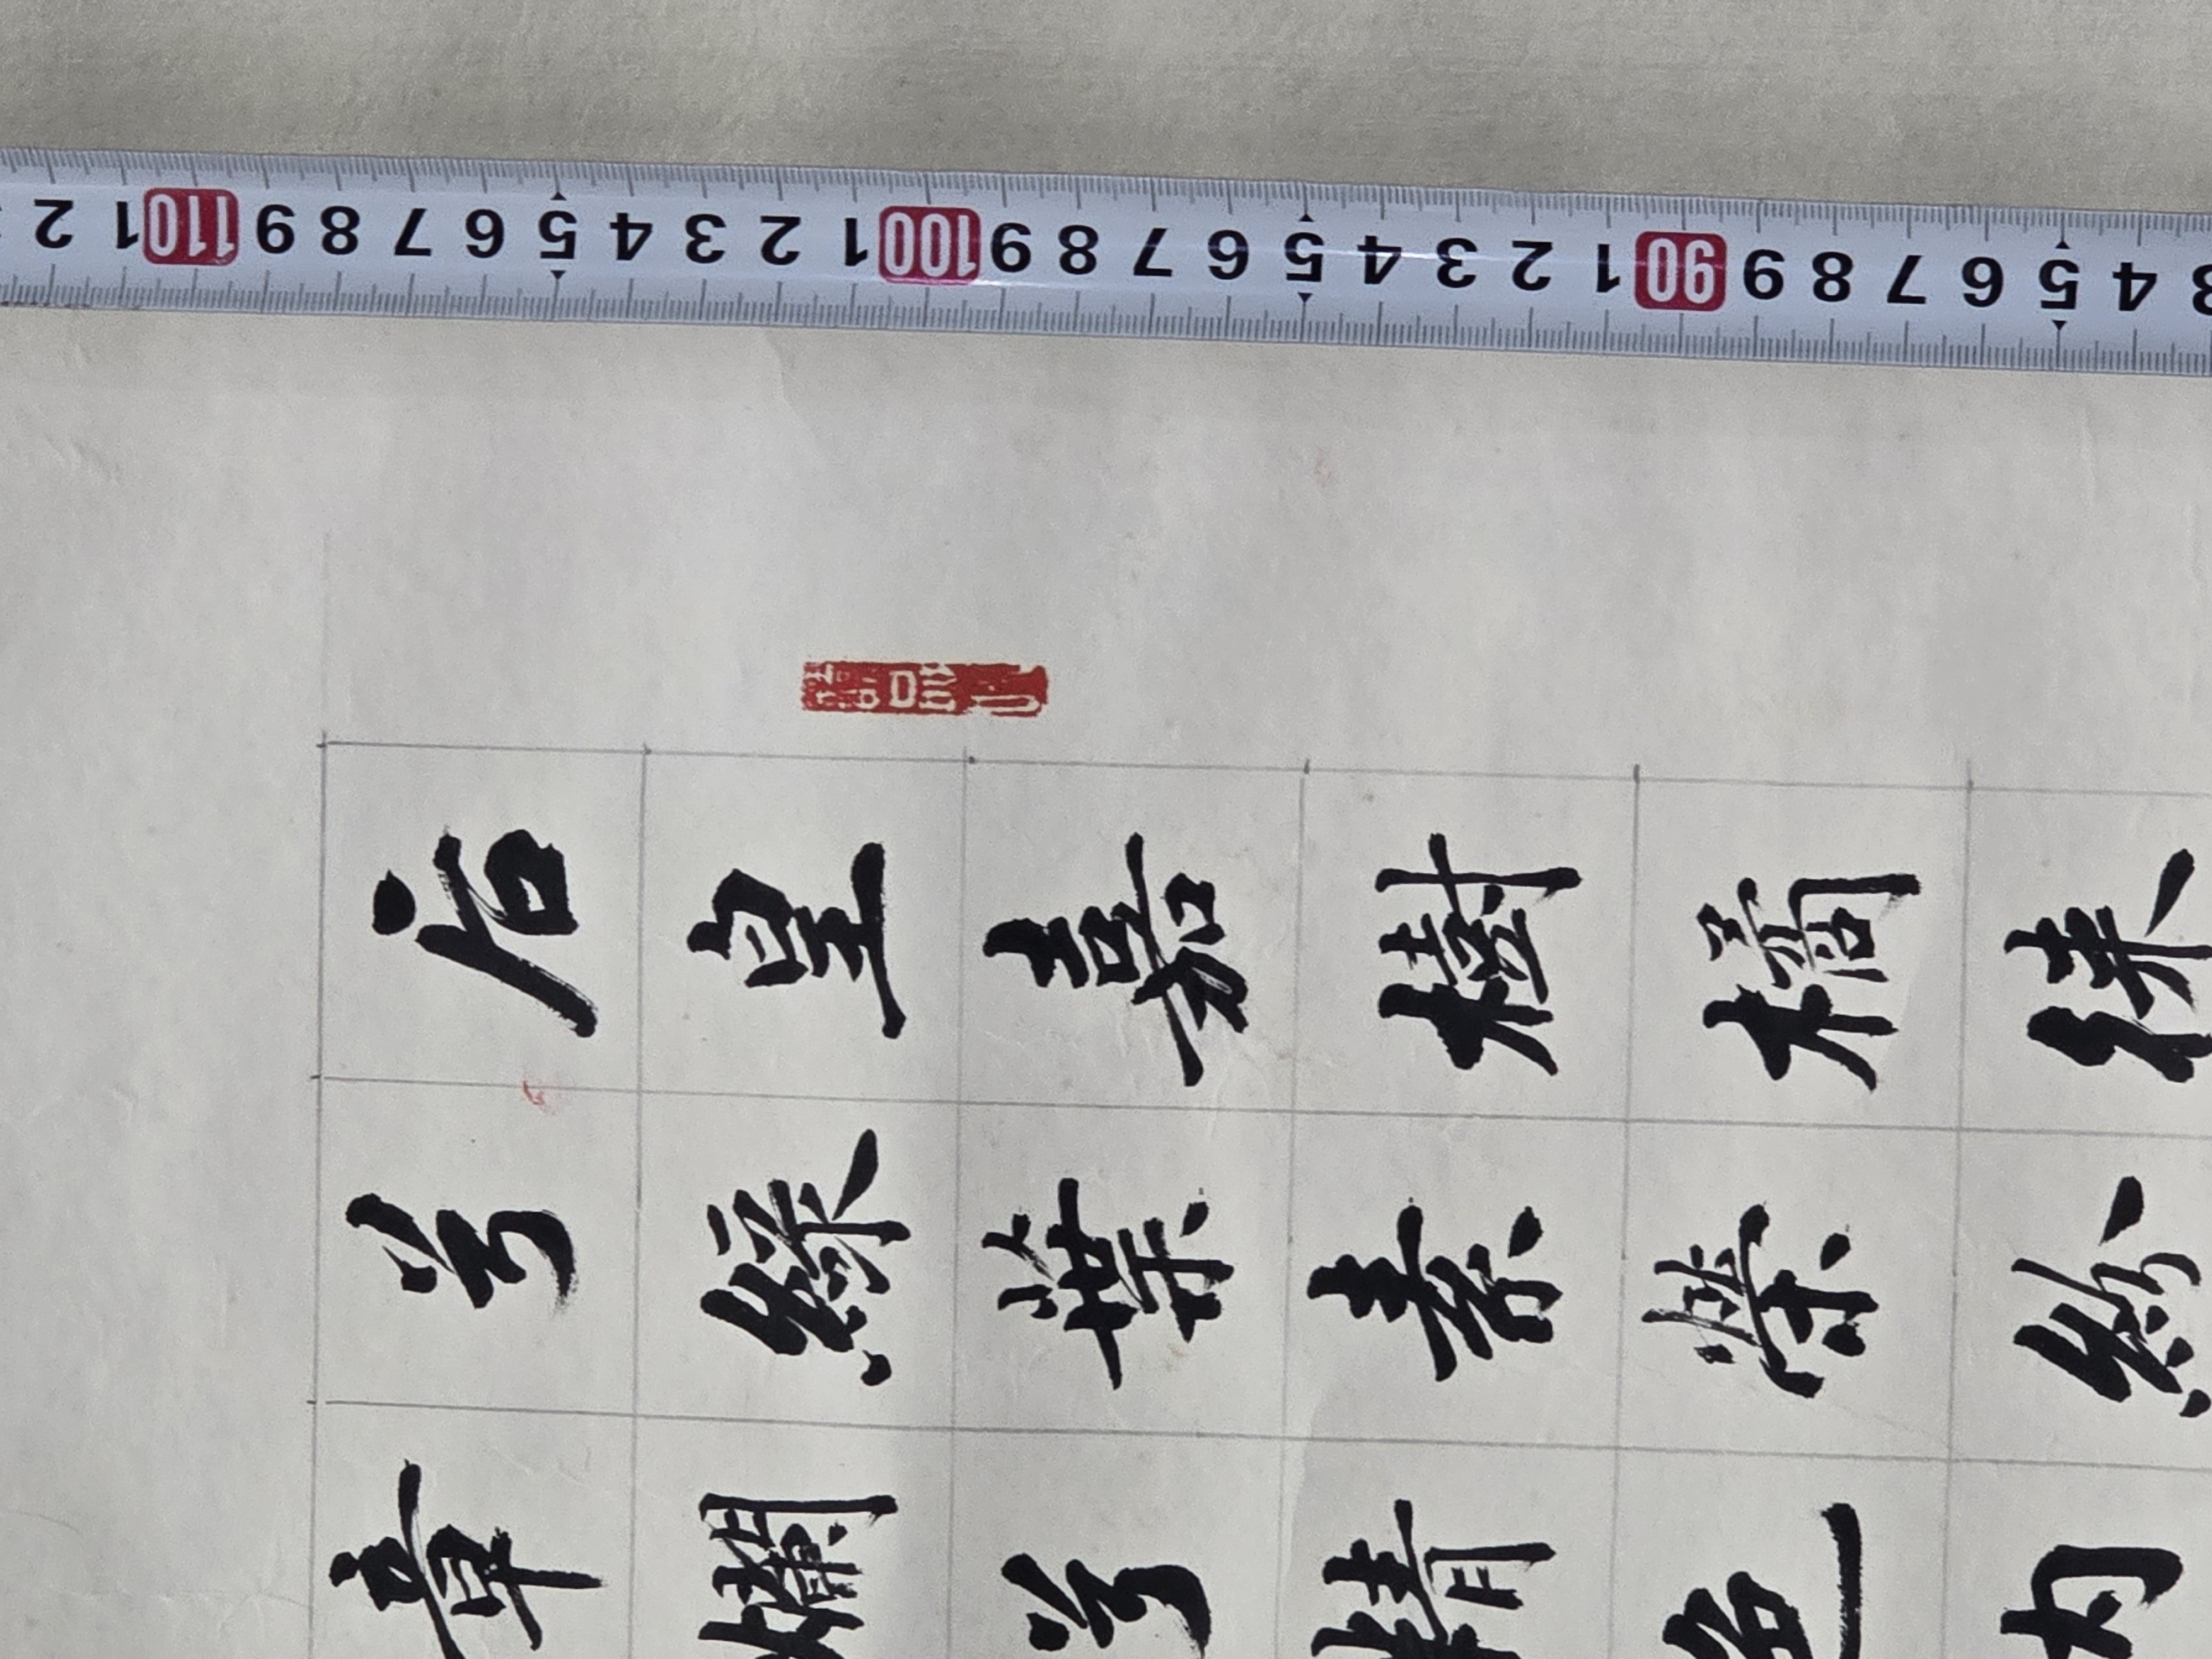 后皇嘉樹橘徠
兮綠葉素榮紛
章爛兮精色內
3 4 5 6 7 8 9 90 1 2 3 4 5 6 7 8 9 100 1 2 3 4 5 6 7 8 9 110 1 2